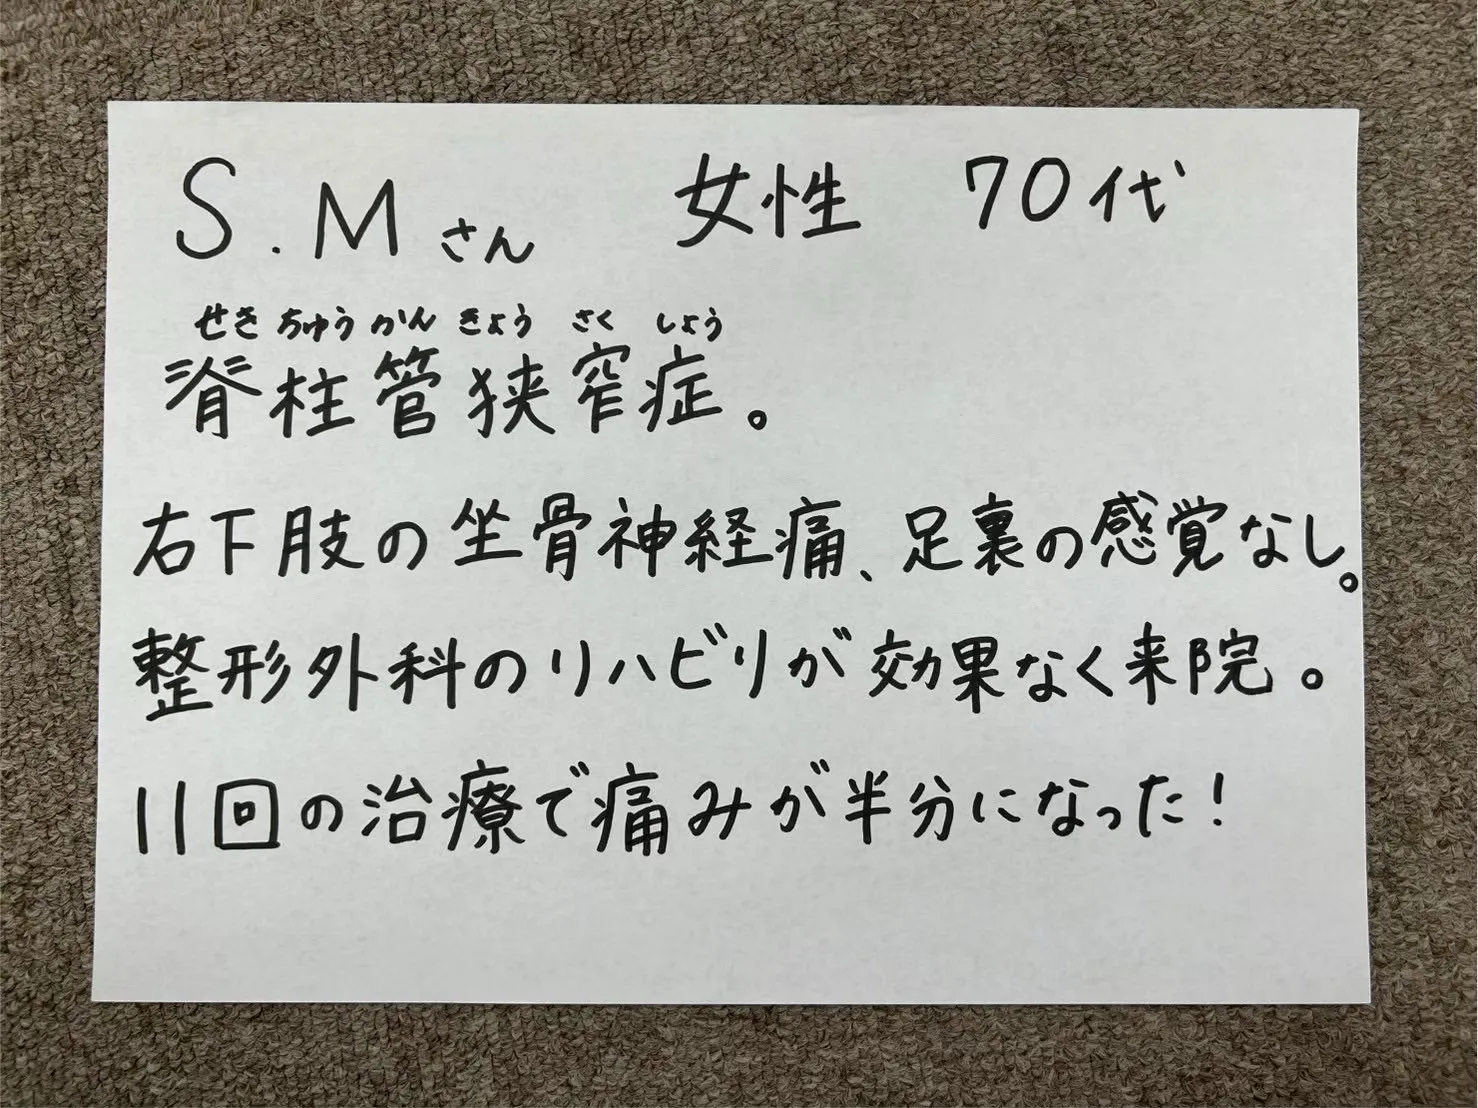 S.Mさん 女性 70代
せきちゅうかんきょうさくしょう
脊柱管狭窄症。
右下肢の坐骨神経痛、足裏の感覚なし。
整形外科のリハビリが効果なく来院。
11回の治療で痛みが半分になった!